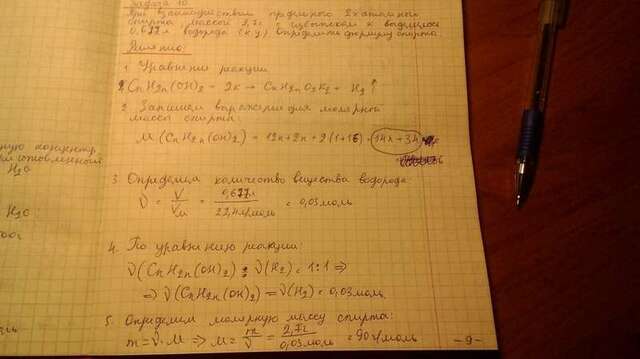 Задача 10
При взаимодействии предельного 2хатомного
спирта массой 2,7г с избытком K выделилось
0,677л водорода (н.у.) Определить формулу спирта.
Решение:
1. Уравнение реакции
CnH2n(OH)2 + 2K → CnH2nO2K2 + H2↑
2. Запишем выражение для молярной
массы спирта:
M(CnH2n(OH)2) = 12n+2n+2(1+16) = 14n+34
3 Определяем количество вещества водорода
ν = V/Vм = 0,677л/22,4л/моль = 0,03моль
4. По уравнению реакции:
ν(CnH2n(OH)2) : ν(H2) = 1:1 ⇒
⇒ ν(CnH2n(OH)2) = ν(H2) = 0,03моль
5. Определяем молярную массу спирта:
m=ν·M ⇒ M = m/ν = 2,7г/0,03моль = 90г/моль
-9-
H2O
H2O